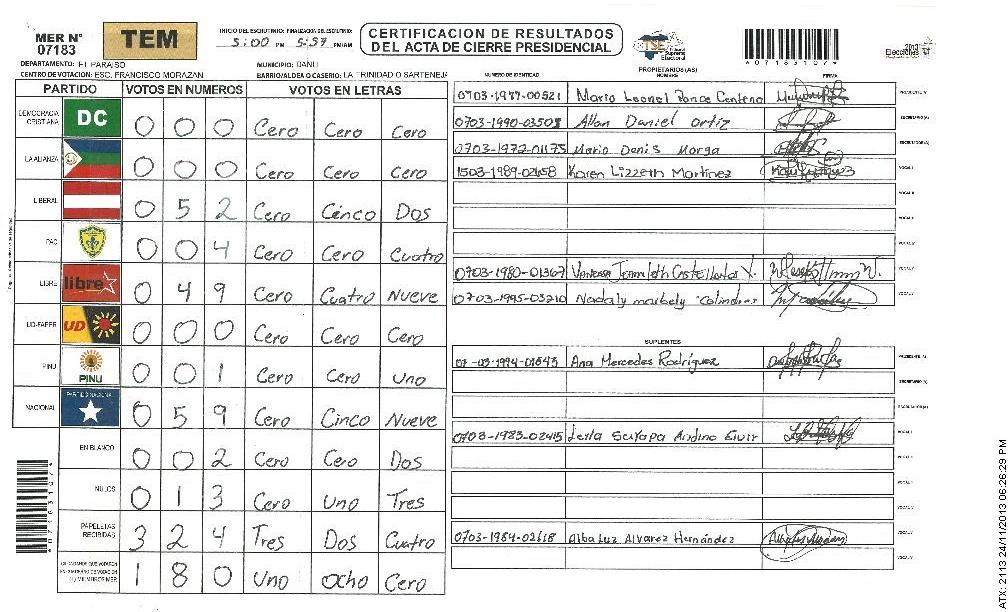 MER Nº
07183
TEM
INICIO DEL ESCRUTINIO: FINALIZACION DEL ESCRUTINIO:
5:00 PM 5:57 PM/AM
CERTIFICACION DE RESULTADOS
DEL ACTA DE CIERRE PRESIDENCIAL
TSE Tribunal Supremo Electoral
07183107
2013
Elecciones
DEPARTAMENTO: EL PARAISO
MUNICIPIO: DANLI
CENTRO DE VOTACION: ESC. FRANCISCO MORAZAN
BARRIO/ALDEA O CASERIO: LA TRINIDAD O SARTENEJA
PARTIDO VOTOS EN NUMEROS VOTOS EN LETRAS
DEMOCRACIA CRISTIANA DC 0 0 0 Cero Cero Cero
LA ALIANZA 0 0 0 Cero Cero Cero
LIBERAL 0 5 2 Cero Cinco Dos
PAC 0 0 4 Cero Cero Cuatro
LIBRE libre 0 4 9 Cero Cuatro Nueve
UD-FAPER UD 0 0 0 Cero Cero Cero
PINU PINU 0 0 1 Cero Cero Uno
NACIONAL PARTIDO NACIONAL 0 5 9 Cero Cinco Nueve
EN BLANCO 0 0 2 Cero Cero Dos
NULOS 0 1 3 Cero Uno Tres
PAPELETAS RECIBIDAS 3 2 4 Tres Dos Cuatro
CIUDADANOS QUE VOTARON 1 8 0 Uno Ocho Cero
NUMERO DE IDENTIDAD PROPIETARIOS (AS) NOMBRE FIRMA
0703-1977-00521 Mario Leonel Ponce Centeno
0703-1990-03508 Allan Daniel Ortiz
0703-1972-01175 Mario Denis Morga
1503-1989-02458 Karen Lizzeth Martinez
0703-1980-01367 Vanessa Jeannieth Castellanos Y.
0703-1995-03210 Nadaly marbely Calindres
SUPLENTES
07-03-1994-01543 Ana Mercedes Rodríguez
0703-1983-02415 Leyla Suyapa Andino
0703-1984-02618 Alba Luz Alvarez Hernández
07183107
ATX: 2113 24/11/2013 06:26:29 PM